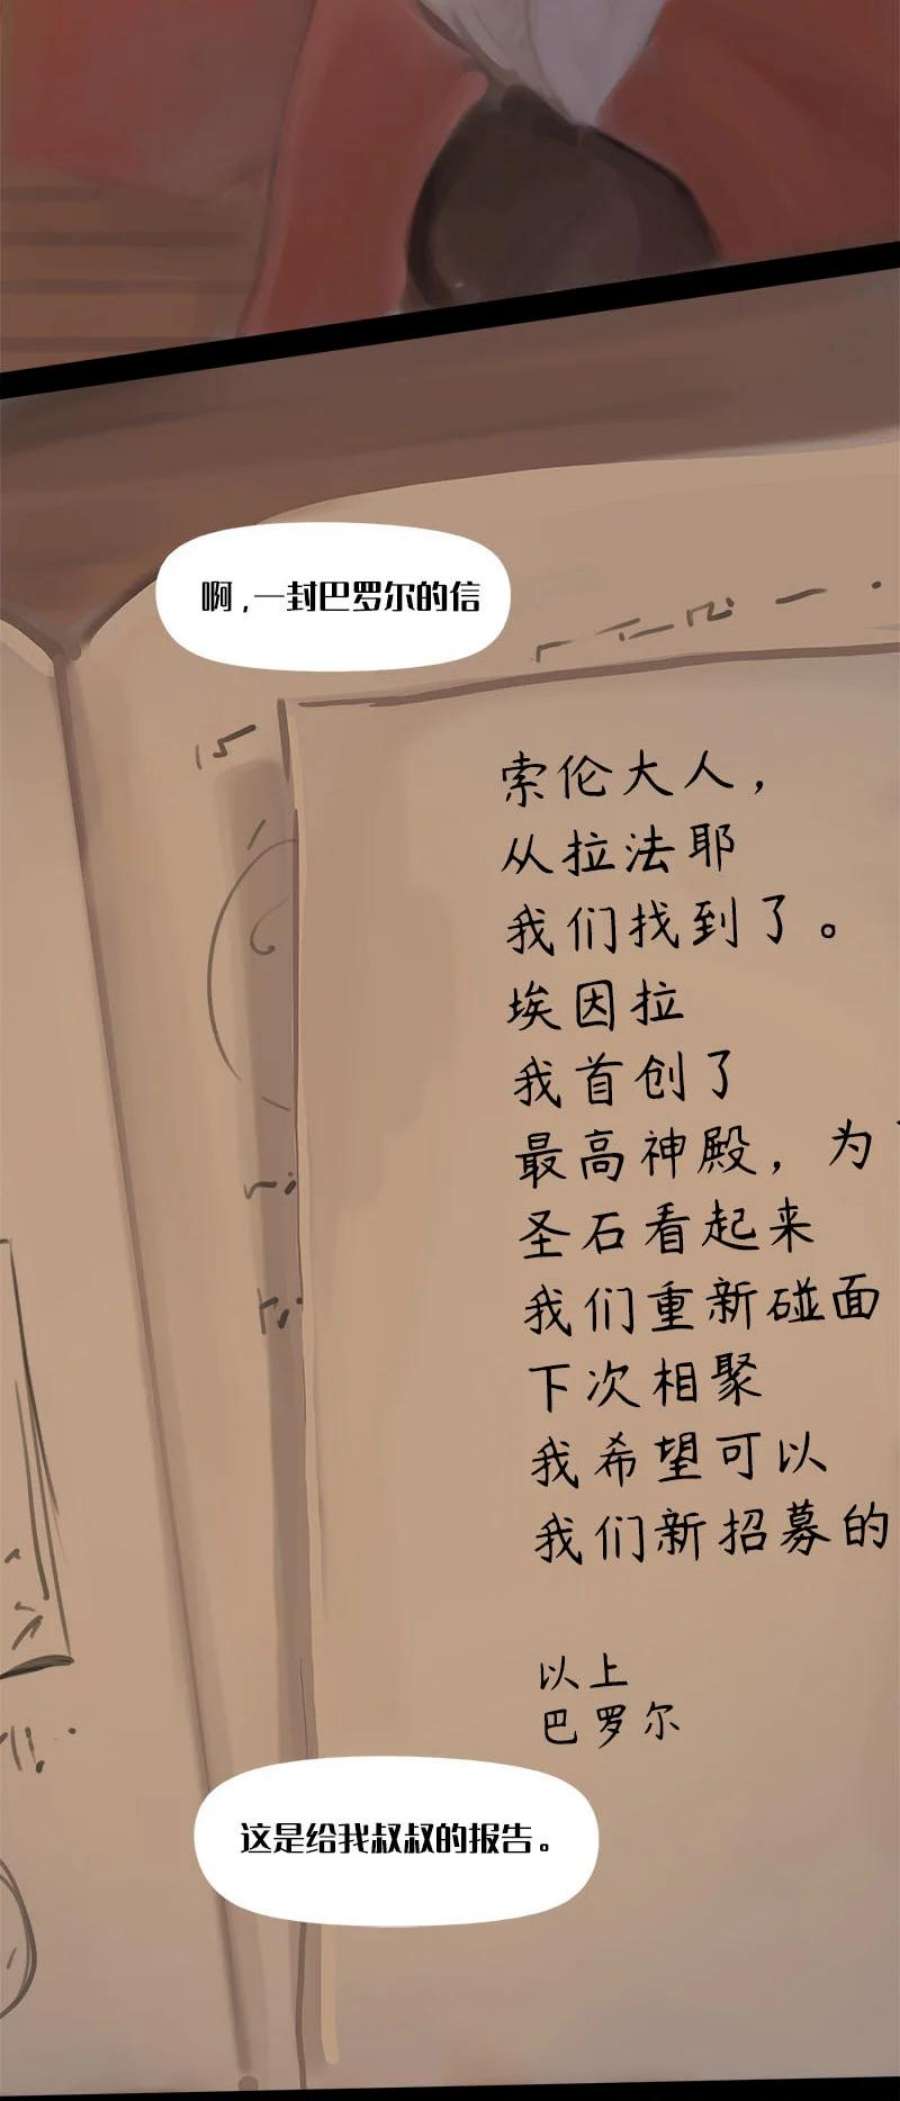 啊,一封巴罗尔的信
索伦大人，
从拉法耶
我们找到了。
埃因拉
我首创了
最高神殿，为
圣石看起来
我们重新碰面
下次相聚
我希望可以
我们新招募的
以上
巴罗尔
这是给我叔叔的报告。